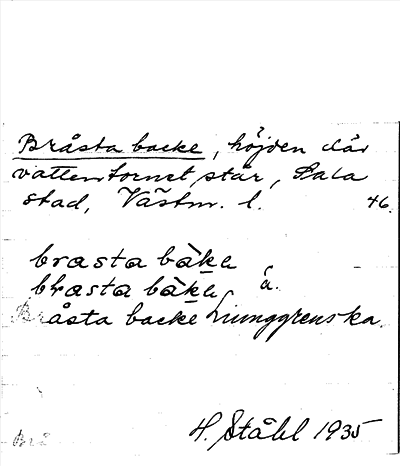 Bråsta backe, höjden där
vattentornet står, Sala
stad, Västm. l. 46.
brasta bàkę
brasta bàkę å.
Bråsta backe Ljunggrenska.
H. Ståhl 1935
Brå